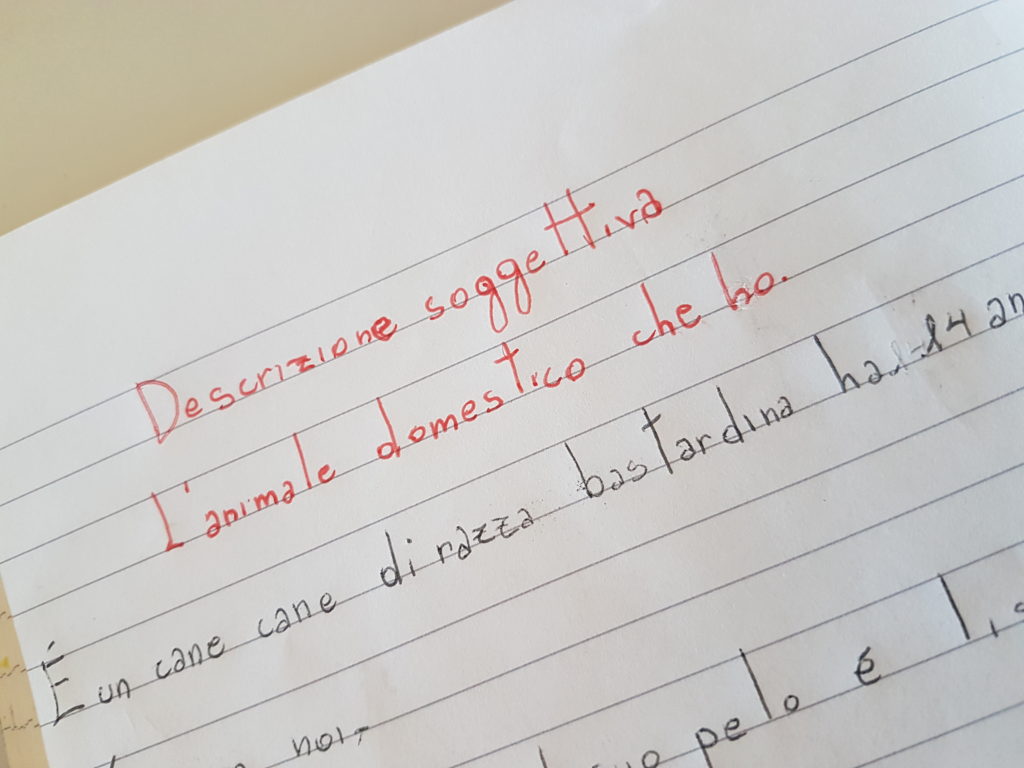 Descrizione soggettiva
L'animale domestico che ho.
É un cane cane di razza bastardina ha 14 an
noi,
pelo é lis